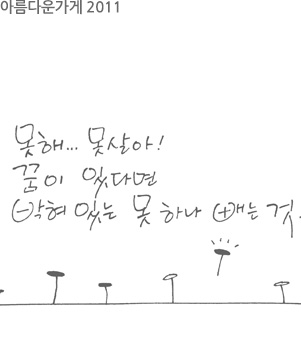 아름다운가게 2011
못해... 못살아!
꿈이 있다면
⊖박혀 있는 못 하나 ⊕빼는 것.